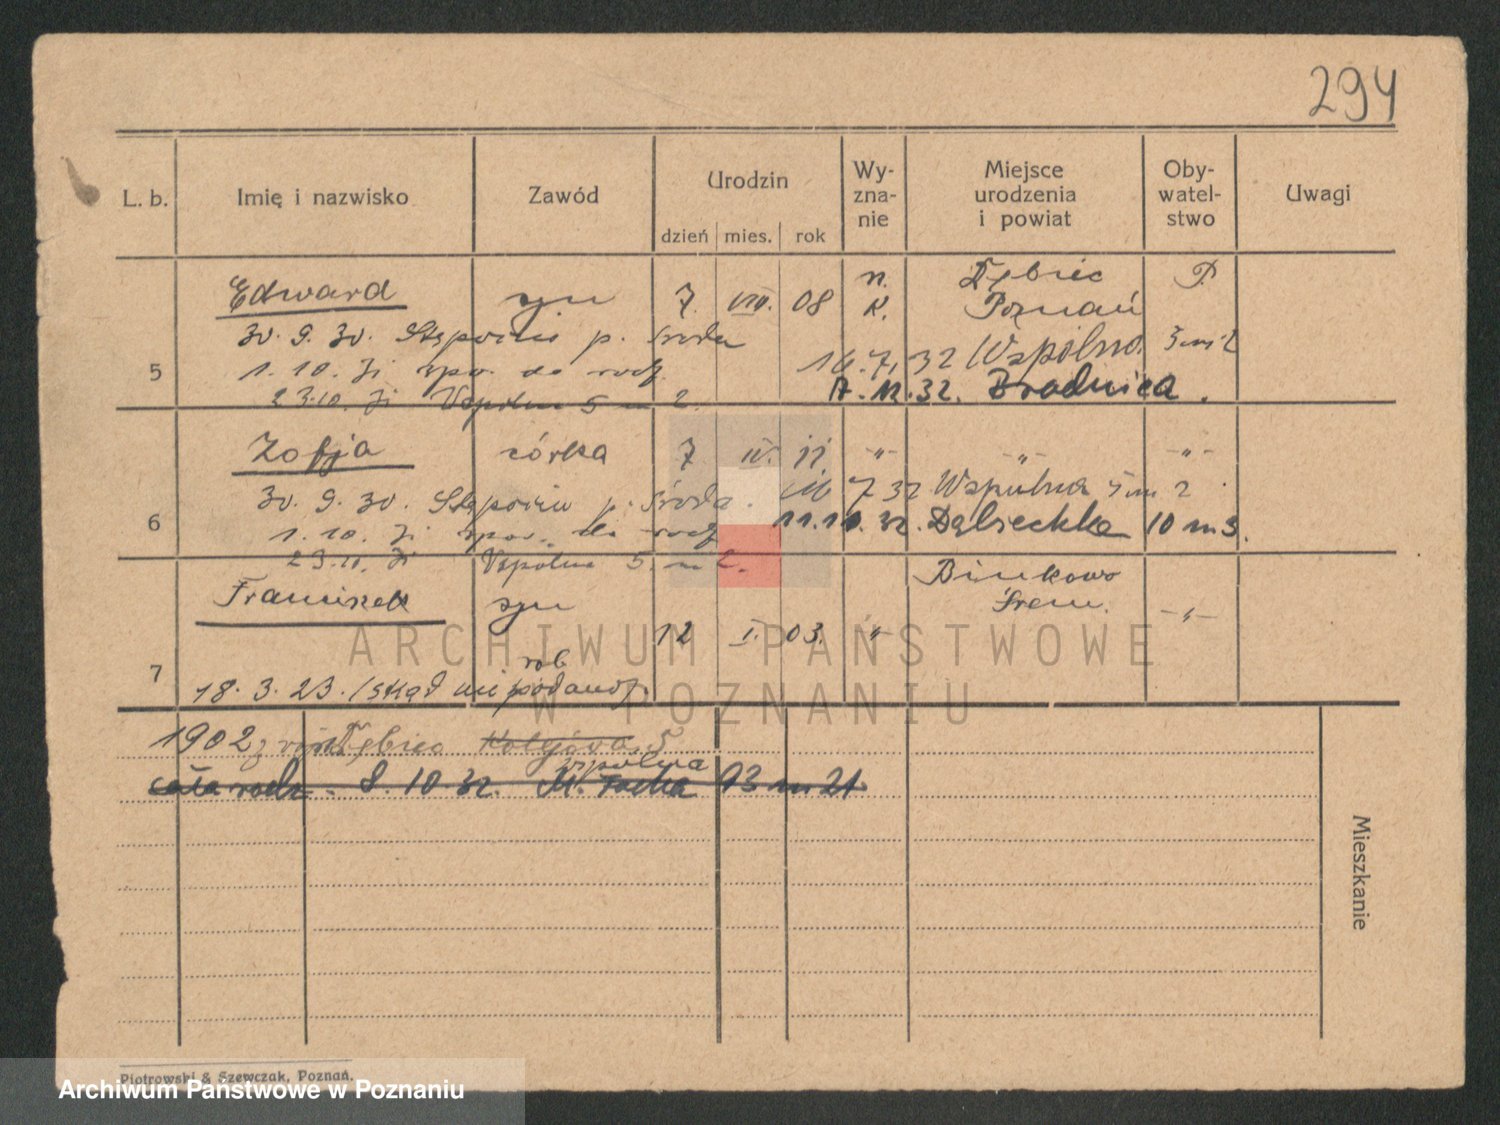 294
L. b. Imię i nazwisko Zawód Urodzin dzień mies. rok Wy-zna-nie Miejsce urodzenia i powiat Oby-watel-stwo Uwagi
5 Edward syn 7. VIII. 08 n. K. Dębiec Poznań P.
30. 9. 30. p. Środa
16. 7. 32 Wspólna 5 m 2
1. 10. do rodz.
17. 12. 32. Brodnica.
23.10. Wspólna 5 m 2.
6 Zofja córka 7 IV. 11 -"- -"- -"-
30. 9. 30. p. Środa. 16 7 32 Wspólna 5 m 2
1. 10. do rodz 11.11.32. Dąbiecka 10 m 3.
23.10. Wspólna 5. m 2.
7 Franciszek syn 12 I. 03. -"- Binkowo Śrem. -"-
rob
18. 3. 23. /skąd nie podano/.
1902 z Dębiec Kolejowa 5
wspólna
cała rodz. 8. 10. 32. M. Focha 93 m 21
Mieszkanie
Piotrowski & Szewczak, Poznań.
ARCHIWUM PAŃSTWOWE
W POZNANIU
Archiwum Państwowe w Poznaniu